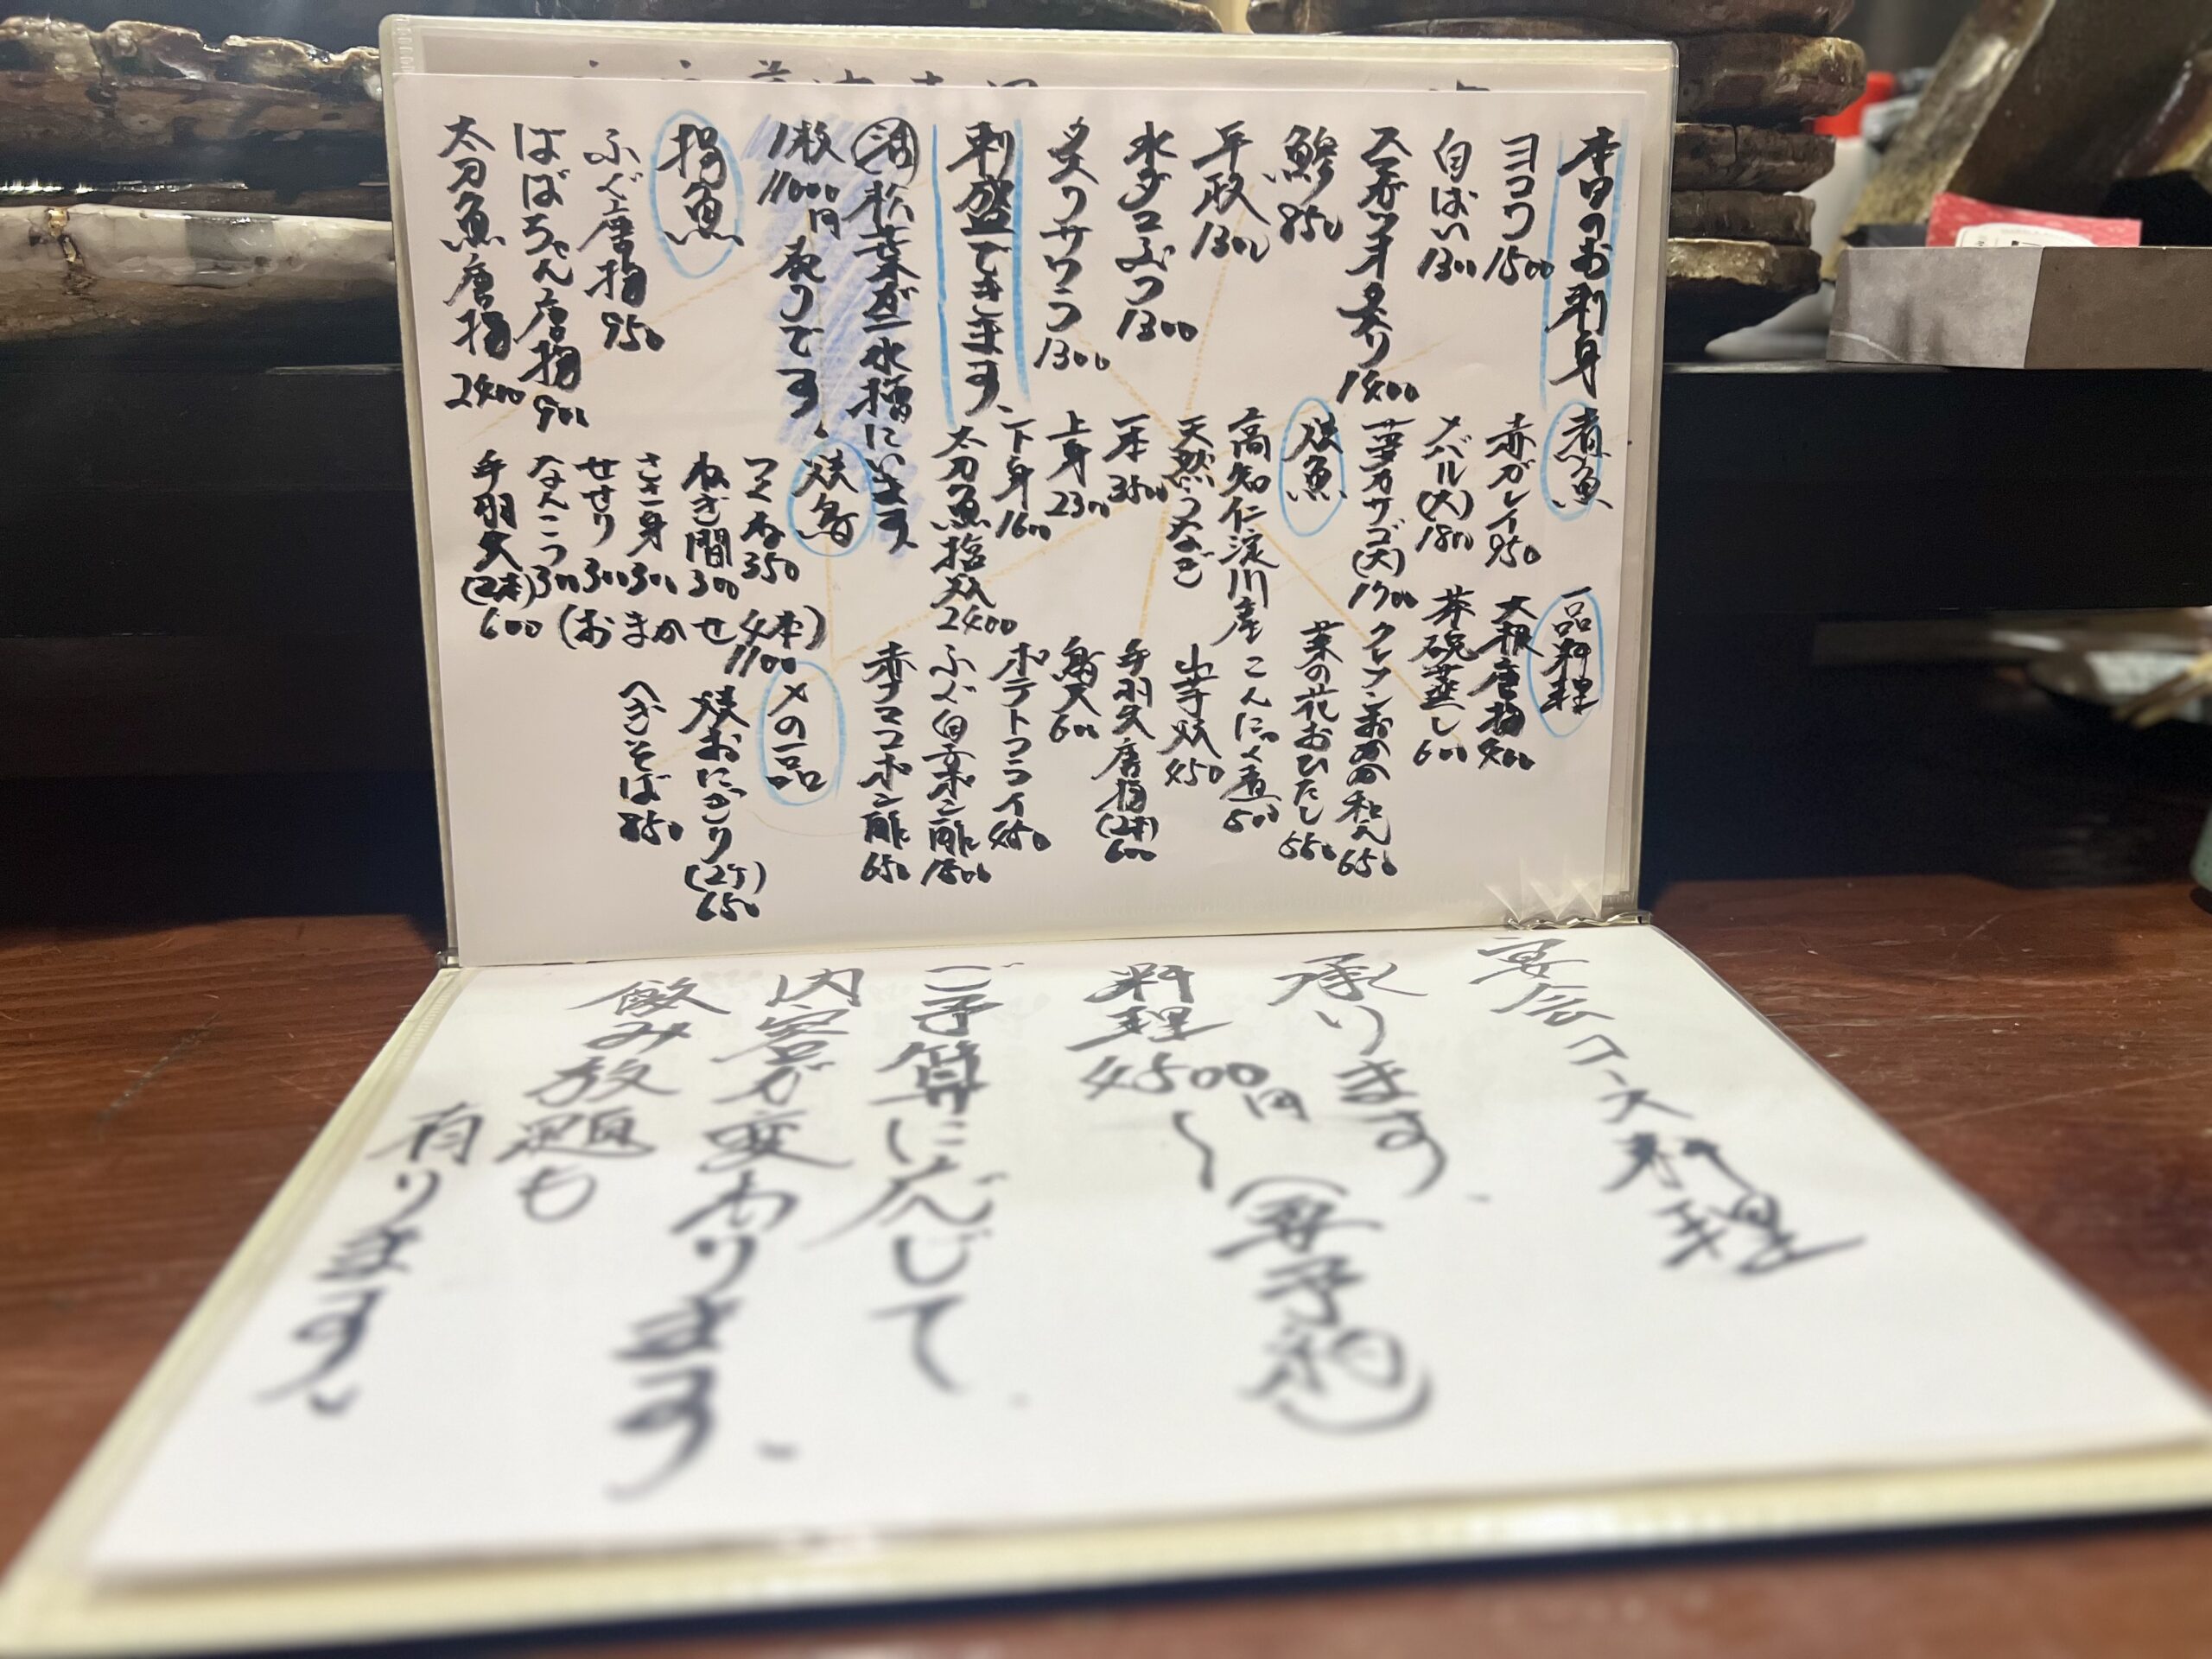 本日のお刺身
ヨコワ 1500
白ばい 1300
スマガツオタタキ 1400
鯵 850
平政 1300
水ダコぶつ 1300
炙りサワラ 1300
刺盛できます
活松葉ガニ水槽にいます
1枚11000円有りです
揚魚
ふぐ唐揚 950
はばちゃん唐揚 900
太刀魚唐揚 2400
煮魚
赤ガレイ 950
メバル(大) 1800
カサゴ(大) 1700
焼魚
高知仁淀川産
天然うなぎ
一本 3500
上身 2300
下身 1600
太刀魚塩焼 2400
焼鳥
つくね 350
ねぎ間 300
ささ身 300
せせり 300
なんこつ 300
手羽先(2本) 600
(おまかせ4本) 1100
一品料理
大根唐揚 400
茶碗蒸し 600
クレソンおかか和え 650
菜の花おひたし 550
こんにゃく煮 500
山芋焼 450
手羽先唐揚(2本) 600
鶏天 600
ポテトフライ 450
ふぐ白子ポン酢 1500
赤ナマコポン酢 650
〆の一品
焼おにぎり(2ケ) 650
へぎそば 850
宴会コース料理
承ります、
料理4500円〜(要予約)
ご予算に応じて
内容が変わります、
飲み放題も
有ります。